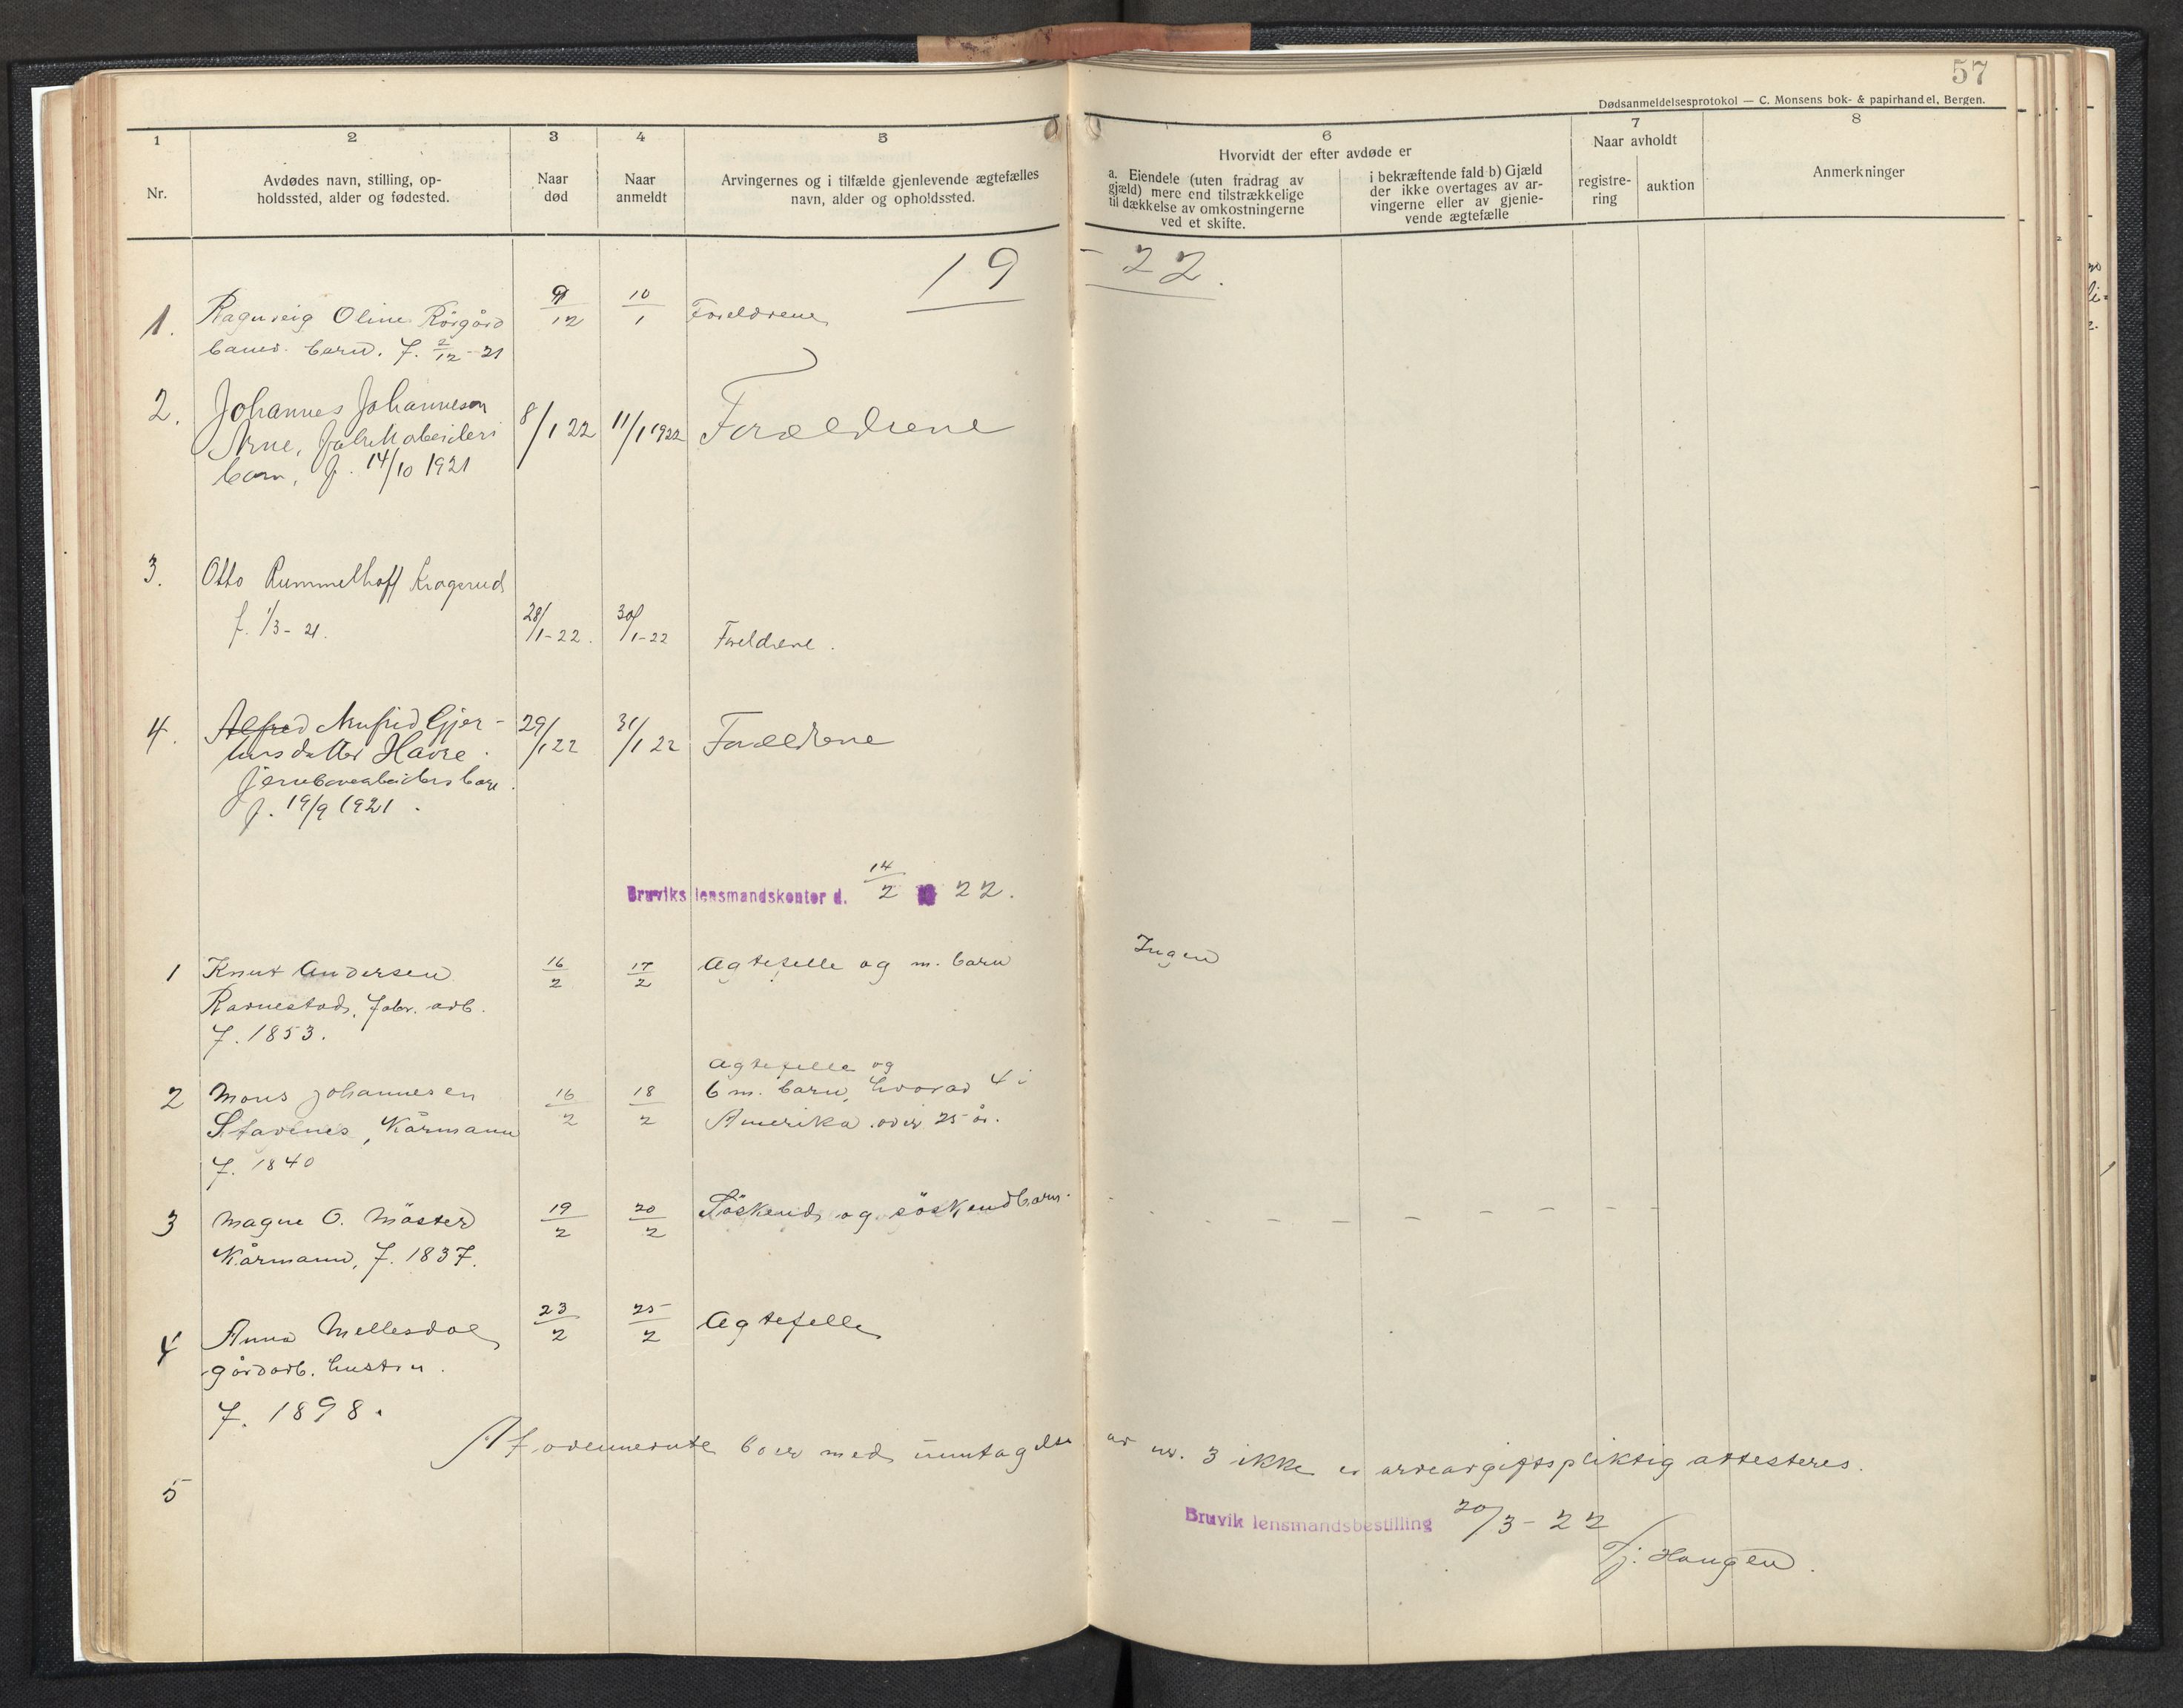 57
Dødsanmeldelsesprotokol — C. Monsens bok- & papirhandel, Bergen.
1 2 3 4 5 6 7 8
Nr.
Avdødes navn, stilling, op-
holdssted, alder og fødested.
Naar
død
Naar
anmeldt
Arvingernes og i tilfælde gjenlevende ægtefælles
navn, alder og opholdssted.
Hvorvidt der efter avdøde er
a. Eiendele (uten fradrag av
gjæld) mere end tilstrækkelige
til dækkelse av omkostningerne
ved et skifte.
i bekræftende fald b) Gjæld
der ikke overtages av ar-
vingerne eller av gjenle-
vende ægtefælle
Naar avholdt
registre-
ring
auktion
Anmerkninger
19 - 22.
1. Ragnveig Oline 9/12 10/1 Foreldrene
barn. f. 2/12-21
2. Johannes Johannesen
Arne, 8/1 22 11/1 1922 Forældrene
barn, f. 14/10 1921
3. Otto Rummelhoff Kragerud
f. 1/3-21. 28/1-22. 30/1-22 Foreldrene.
4. Alfred Arnfrid Gjer- 29/1 22 31/1 22 Forældrene
tursdatter Havre.
jernbanearbeiders barn.
f. 19/9 1921.
Bruviks lensmandskontor d. 14/2 22.
1 Knut Andersen 16/2 17/2 Agtefelle og m. barn Ingen
Ravnestad, fabr. arb.
f. 1853.
Agtefelle og
2 Mons Johannesen 16/2 18/2 6 m. barn, hvorav 4 i
Stavenes, Kårmann Amerika over 25 år.
f. 1840
3 Magne O. Mäster 19/2 20/2 Söskend og söskendbarn. - - - - - - - -
Kårmann, f. 1837.
4 Anna Mellesdal 23/2 25/2 Agtefelle
gårdarb. hustru.
f. 1898.
At ovennevnte boer med unntagelse av nr. 3 ikke er arveavgiftspliktig attesteres.
5
Bruvik lensmandsbestilling 20/3-22
Tj. Haugen.